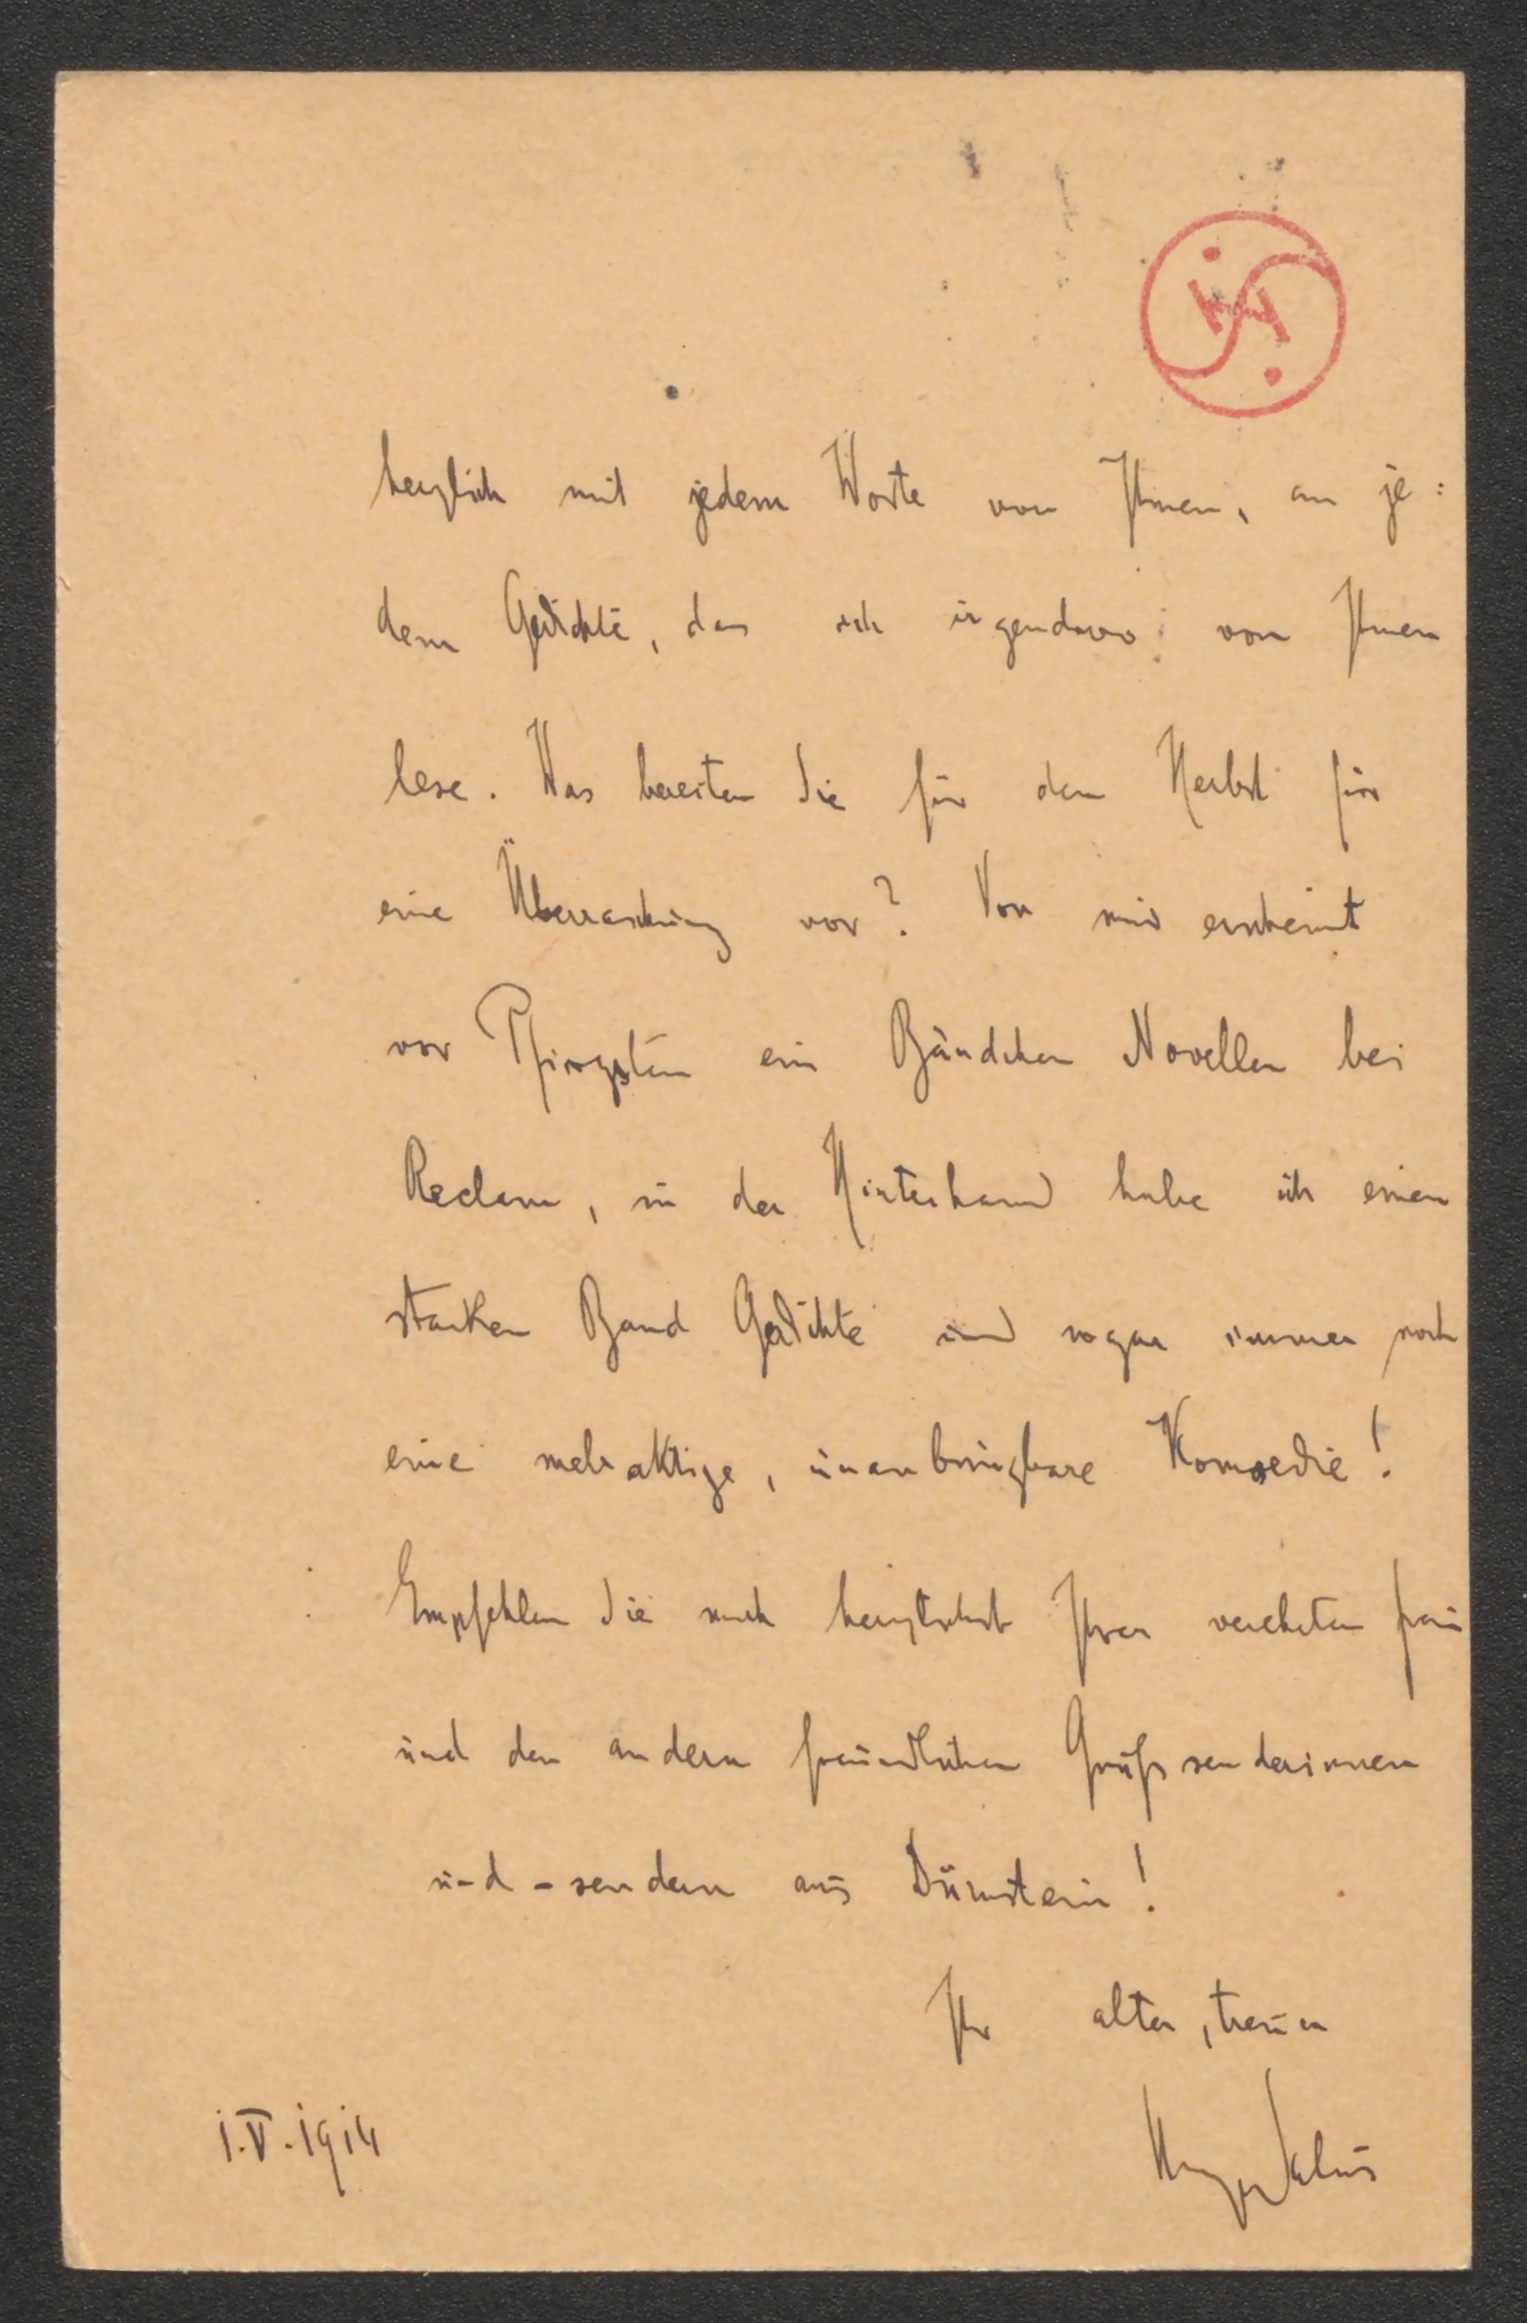 herzlich mit jedem Worte von Ihnen, an je:
dem Gedichte, das ich irgendwo von Ihnen
lese. Was bereiten Sie für den Herbst für
eine Überraschung vor? Von mir erscheint
vor Pfingsten ein Bändchen Novellen bei
Reclam, in der Hinterhand habe ich einen
starken Band Gedichte und sogar immer noch
eine mehraktige, unanbringbare Komoedie!
Empfehlen Sie mich herzlichst Ihrer verehrten Frau
und den andern freundlichen Grußsenderinnen
und -sendern aus Dürnstein!
Ihr alter, treuer
Hugo Salus
1.V.1914